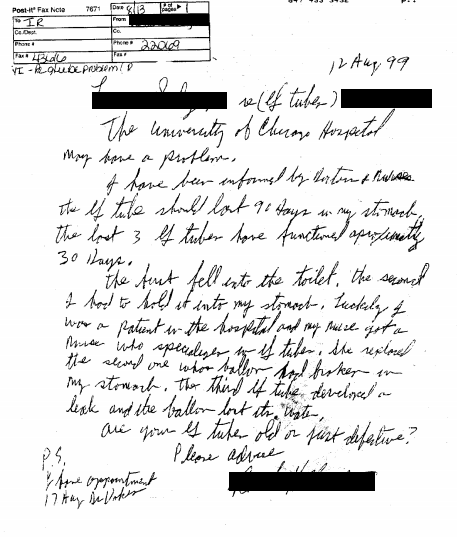 847 433 3432
Post-it® Fax Note 7671 Date 8/13 # of pages ▶ 1
To IR From
Co./Dept. Co.
Phone # Phone # 22069
Fax # Fax #
12 Aug 99
re (G tubes)
The University of Chicago Hospital
may have a problem.
I have been informed by Doctors & Nurses
the G tube should last 90 days in my stomach,
the last 3 G tubes have functioned aproximatly
30 Days.
The first fell into the toilet, the second
I had to hold it into my stomach. Luckely I
was a patient in the hospital and my nurse got a
nurse who specializes in G tubes. She replaced
the second one whose ballon had broken in
my stomach. The third G tube developed a
leak and the ballon lost its water.
Are your G tubes old or just defective?
Please advise
P.S.
I have appointment
17 Aug Dr